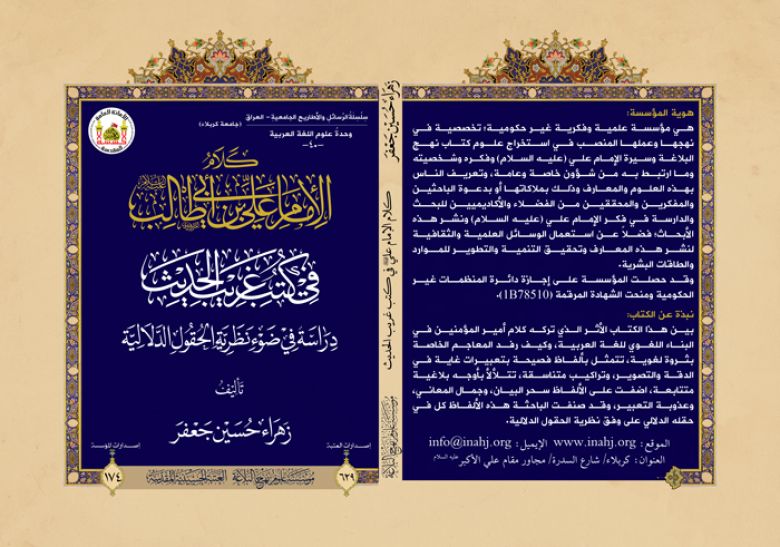 سلسلة الرسائل والأطاريح الجامعية - العراق
(جامعة كربلاء)
وحدة علوم اللغة العربية
-٤٠-
كلام
الإمام علي بن أبي طالب
في كتب غريب الحديث
دراسة في ضوء نظرية الحقول الدلالية
تأليف
زهراء حسين جعفر
إصدارات العتبة
إصدارات المؤسسة
٦٢٩
مؤسسة علوم نهج البلاغة
العتبة الحسينية المقدسة
١٧٤
زهراء حسين جعفر
كلام الإمام علي في كتب غريب الحديث
مؤسسة علوم نهج البلاغة
هوية المؤسسة:
هي مؤسسة علمية وفكرية غير حكومية؛ تخصصية في
نهجها وعملها المنصب في استخراج علوم كتاب نهج
البلاغة وسيرة الإمام علي (عليه السلام) وفكره وشخصيته
وما ارتبط به من شؤون خاصة وعامة، وتعريف الناس
بهذه العلوم والمعارف وذلك بملاكاتها أو بدعوة الباحثين
والمفكرين والمحققين من الفضلاء والأكاديميين للبحث
والدارسة في فكر الإمام علي (عليه السلام) ونشر هذه
الأبحاث؛ فضلاً عن استعمال الوسائل العلمية والثقافية
لنشر هذه المعارف وتحقيق التنمية والتطوير للموارد
والطاقات البشرية.
وقد حصلت المؤسسة على إجازة دائرة المنظمات غير
الحكومية ومنحت الشهادة المرقمة (1B78510).
نبذة عن الكتاب:
بين هذا الكتاب الأثر الذي تركه كلام أمير المؤمنين في
البناء اللغوي للغة العربية، وكيف رفد المعاجم الخاصة
بثروة لغوية، تتمثل بألفاظ فصيحة بتعبيرات غاية في
الدقة والتصوير، وتراكيب متناسقة، تتلألأ بأوجه بلاغية
متتابعة، اضفت على الألفاظ سحر البيان، وجمال المعاني،
وعذوبة التعبير، وقد صنفت الباحثة هذه الألفاظ كل في
حقله الدلالي على وفق نظرية الحقول الدلالية.
الموقع: www.inahj.org الإيميل: info@inahj.org
العنوان: كربلاء/ شارع السدرة/ مجاور مقام علي الأكبر عليه السلام